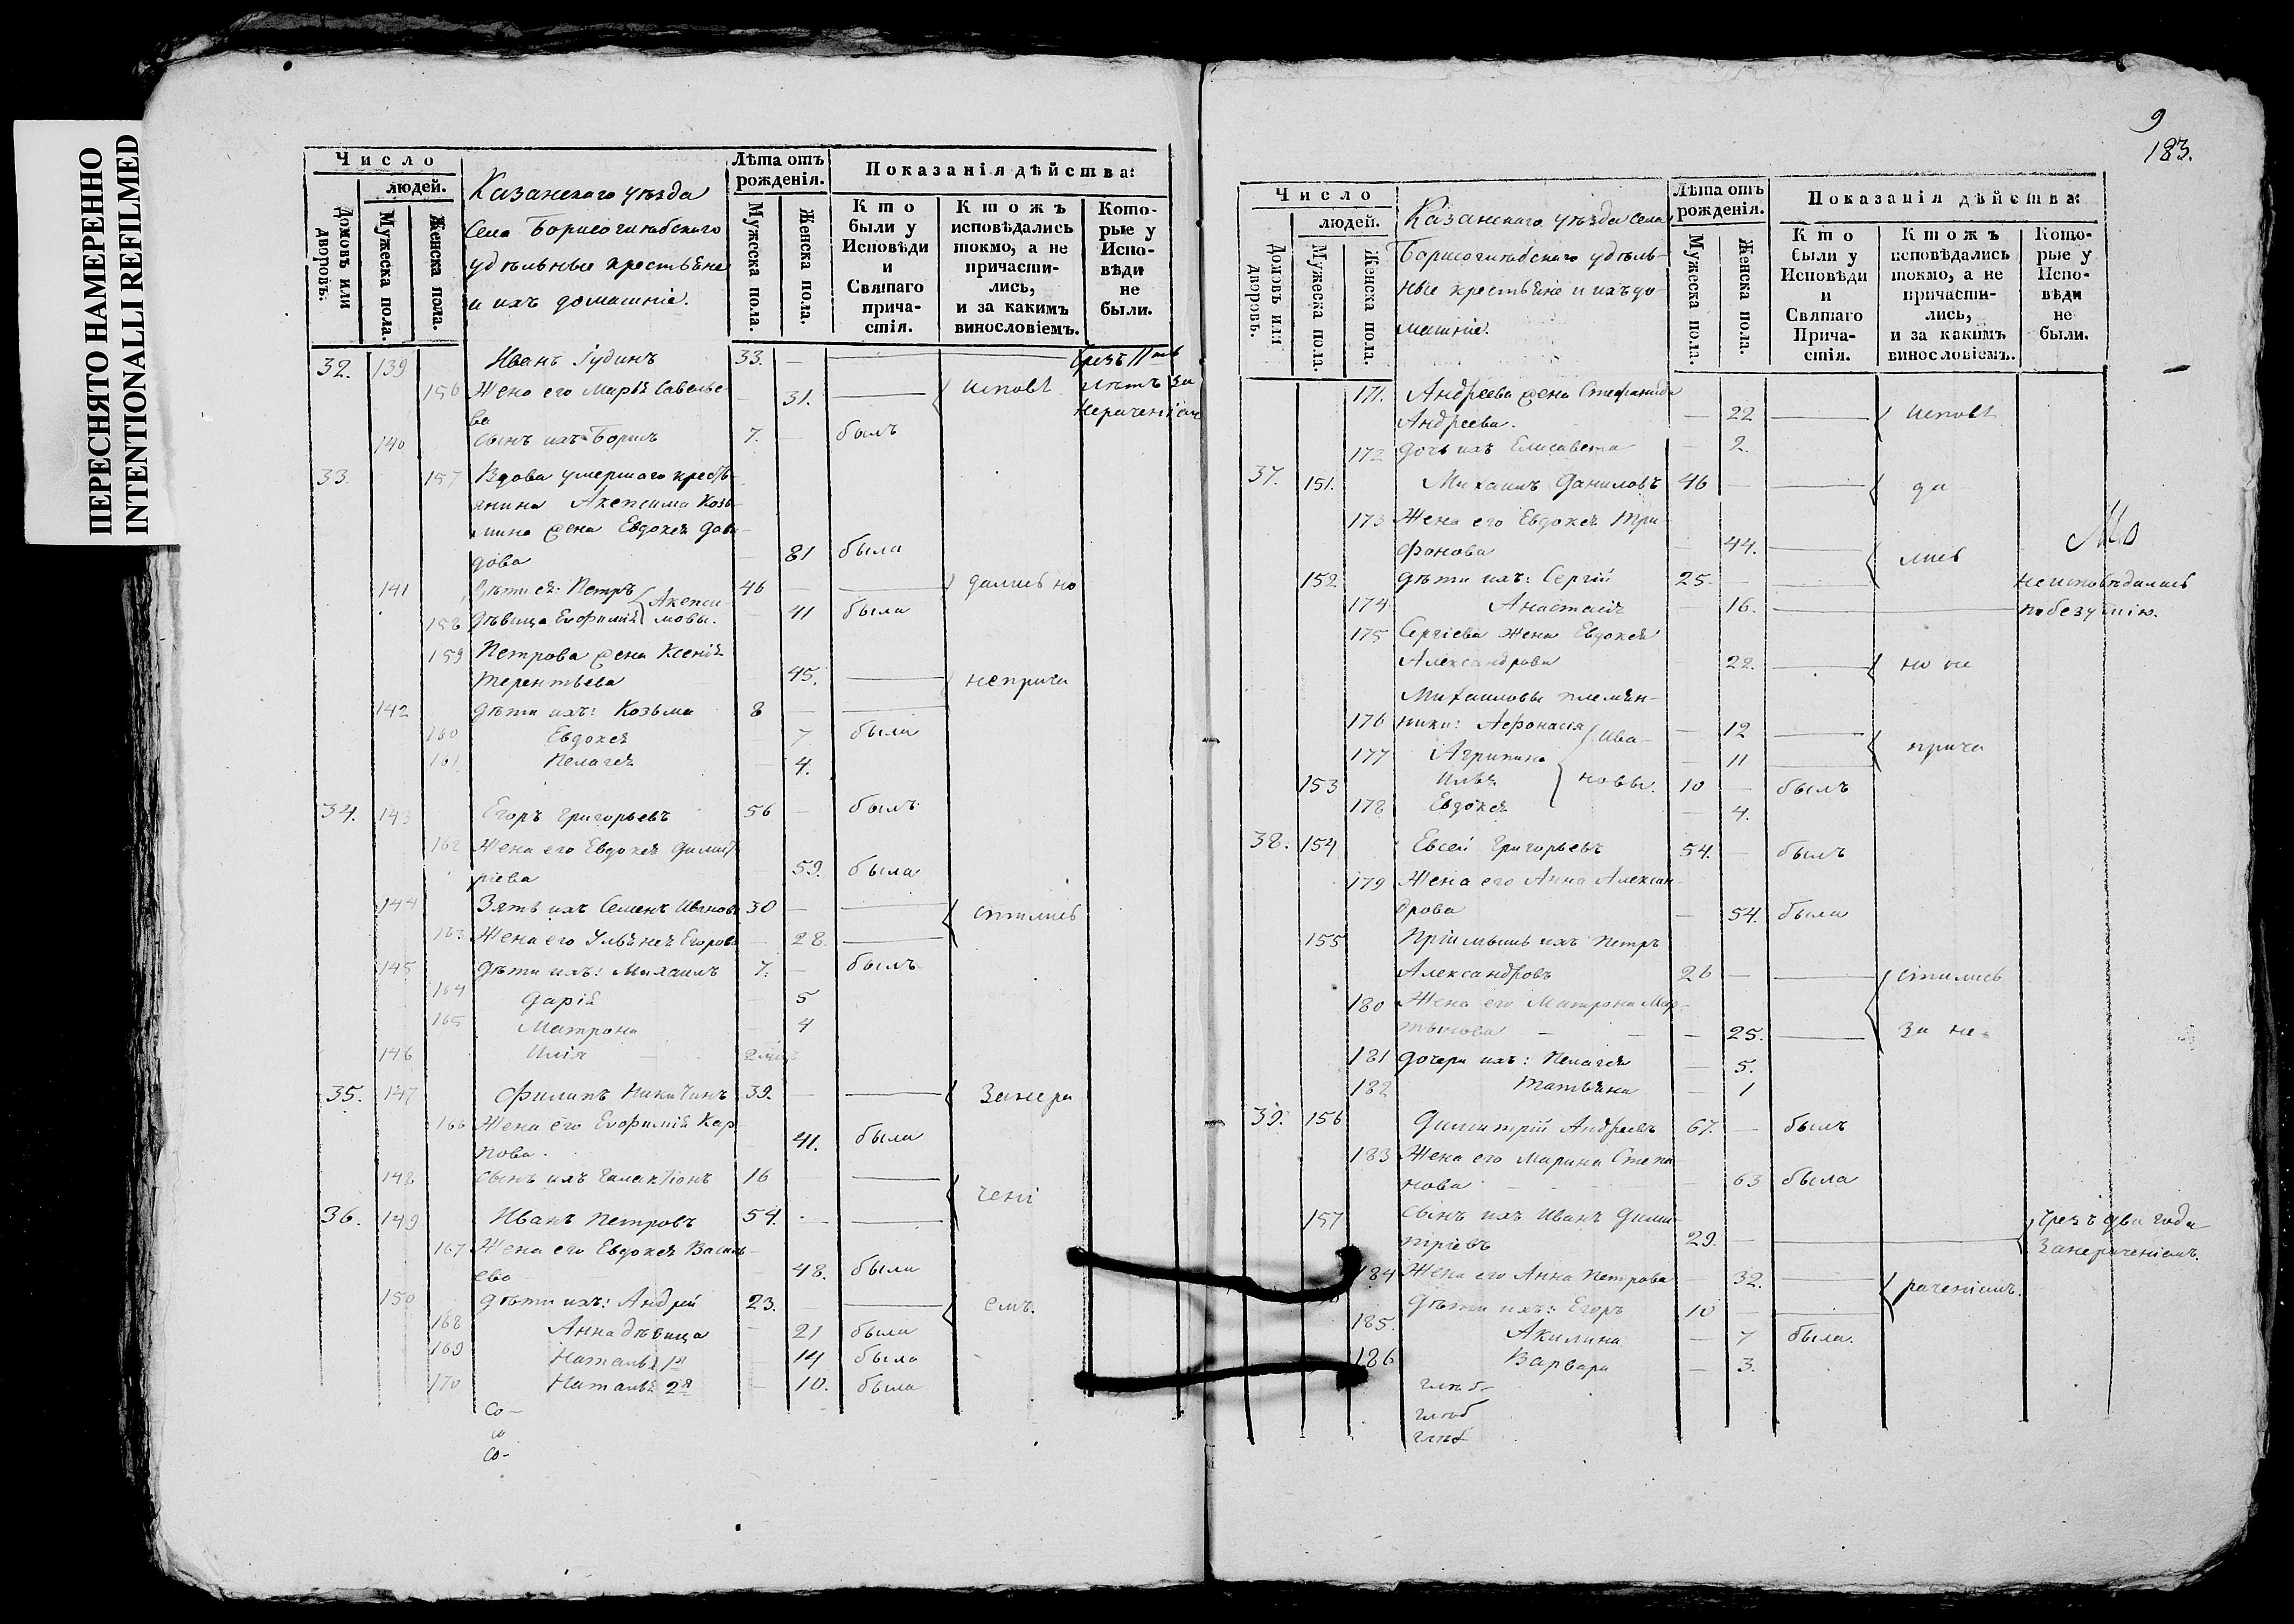 ПЕРЕСНЯТО НАМЕРЕННО
INTENTIONALLI REFILMED
Число
людей.
Домовъ или дворовъ.
Мужеска пола.
Женска пола.
Казанскаго уѣзда
Села Борисоглѣбскаго
удѣльные крестьяне
и ихъ домашніе.
Лѣта отъ рожденія.
Мужеска пола.
Женска пола.
Показанія дѣйства:
Кто были у Исповѣди и Святаго причастія.
Ктожъ исповѣдались токмо, а не причастились, и за какимъ винословіемъ.
Которые у Исповѣди не были.
32. 139 Иванъ Іудинъ 33. — — — Чрезъ
156 Жена его Марья Савелье- 31. — испові лѣтъ за
ва нераченіем
140 сынъ ихъ Борисъ 7. — былъ
33. 157 Вдова умершаго кресть-
янина Акепсима Козь-
мина жена Евдокея Дави-
дова — 81 была
141 Дѣти ея: Петръ 46 — — дались но
158 дѣвица Евфимія Акепси мовы. — 41 была
159 Петрова жена Ксенія
Терентьева 45. — неприча
142 дѣти ихъ: Козьма 8 — —
160 Евдокея — 7 была
161 Пелагея — 4.
34. 143 Егоръ Григорьевъ 56 — былъ
162 Жена его Евдокея Димит
ріева 59. была
144 Зять ихъ Семенъ Ивановъ 30 — — стились
163 Жена его Ульянея Егорова — 28. —
145 дѣти ихъ: Михаилъ 7. — былъ
164 Дарія — 5
165 Матрона — 4
146 Илія — 2
35. 147 Филипъ Никитинъ 39. — — Занера
166 Жена его Евфимія Кар
пова. 41. была
148 сынъ ихъ Галактіонъ 16 — — чені
36. 149 Иванъ Петровъ 54. — —
167 Жена его Евдокея Василь-
ева 48. была
150 дѣти ихъ: Андрей 23. — — емъ.
168 Анна дѣвица — 21 была
169 Наталья 1я 14 была
170 Наталья 2я — 10. была
Со-
со
Со-
9
183.
Число
людей.
Домовъ или дворовъ.
Мужеска пола
Женска пола.
Казанскаго уѣзда Села
Борисоглѣбскаго удѣль-
ные крестьяне и ихъ до-
машніе.
Лѣта отъ рожденія.
Мужеска пола.
Женска пола.
Показанія дѣйства:
Кто были у Исповѣди и Святаго Причастія.
Ктожъ исповѣдались токмо, а не причастились, и за какимъ винословіемъ.
Которые у Исповѣди не были.
171. Андреева жена Стефанида
Андреева. — 22 — испові
172 дочь ихъ Елисавета — 2.
37. 151. Михаилъ Даниловъ 46 — — да
173 Жена его Евдокея Три-
фонова — 44. — лись
152 дѣти ихъ: Сергій 25. — — неисповѣдались
174 Анастасія — 16. — — по безумію.
175 Сергіева жена Евдокея
Александрова — 22. — но не
Михаиловы племян-
176 ники: Афонасія Ива- — 12 —
177 Агрипина — 11 — прича
153 Илья новы. 10 — былъ
178 Евдокея — 4.
38. 154 Евсей Григорьевъ 54. — былъ
179 Жена его Анна Алексан-
дрова — 54. была
155 Пріимышь ихъ Петръ
Александровъ 26 — — стились
180 Жена его Матрона Мар-
тынова — — — 25. — за не-
181 дочери ихъ: Пелагея — 5.
182 Татьяна — 1
39. 156 Димитрій Андреевъ 67. — былъ
183 Жена его Марина Степа
нова — 63 была
157 сынъ ихъ Иванъ Дими-
тріевъ 29. — — — чрезъ два года
Занераченіемъ.
184 Жена его Анна Петрова — 32. — раченіемъ.
Дѣти ихъ: Егоръ 10 — —
185. Акилина — 7 была.
186 Варвара — 3.
глѣб-
глѣб
глѣб